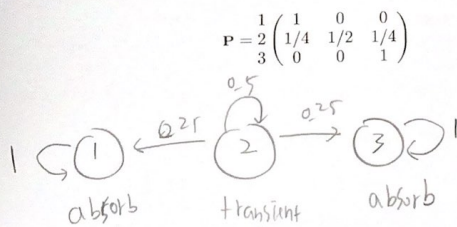 1 1 0 0
P = 2 1/4 1/2 1/4
3 0 0 1
0.5
1 1 0.25 2 0.25 3 1
absorb transient absorb